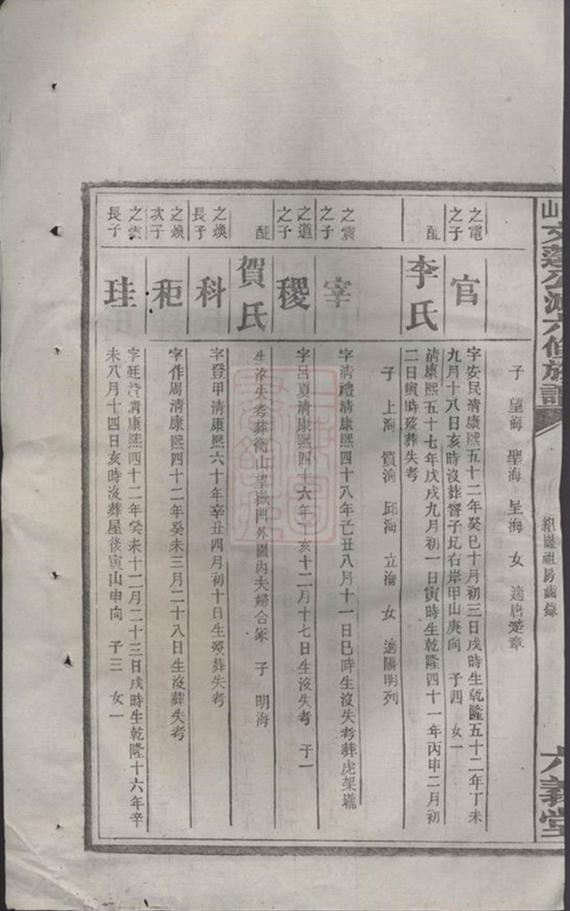 山文蓮公派六修族譜
六義堂
子 望海 聖海 呈海 女 適唐楚章
之電之子
官
字安民清康熙五十二年癸巳十月初三日戌時生乾隆五十二年丁未
九月十八日亥時沒葬 右岸甲山庚向 子四 女一
配
李氏
清康熙五十七年戊戌九月初一日寅時生乾隆四十一年丙申二月初
二日寅時歿葬失考
子 上海 質海 邱海 立海 女 適陽明列
之震之子
宰
字清禮清康熙四十八年己丑八月十一日巳時生沒失考葬虎架壠
之道之子
稷
字呂夏清康熙四十六年丁亥十二月十七日生沒失考 子一
配
賀氏
生沒失考葬衡山望嶽門外園內夫婦合冢 子 明海
之煥長子
科
字登甲清康熙六十年辛丑四月初十日生歿葬失考
之煥次子
秬
字作周清康熙四十二年癸未三月二十八日生沒葬失考
長子
珪
清康熙四十二年癸未十二月二十三日戌時生乾隆十六年辛
未八月十四日亥時沒葬屋後寅山申向 子三 女一